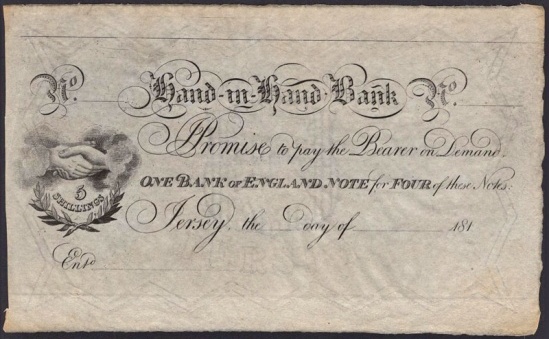 No. Hand-in-Hand Bank No.
I Promise to pay the Bearer on Demand.
ONE BANK OF ENGLAND NOTE for FOUR of these Notes:
5
SHILLINGS
Jersey, the day of 181
Entd